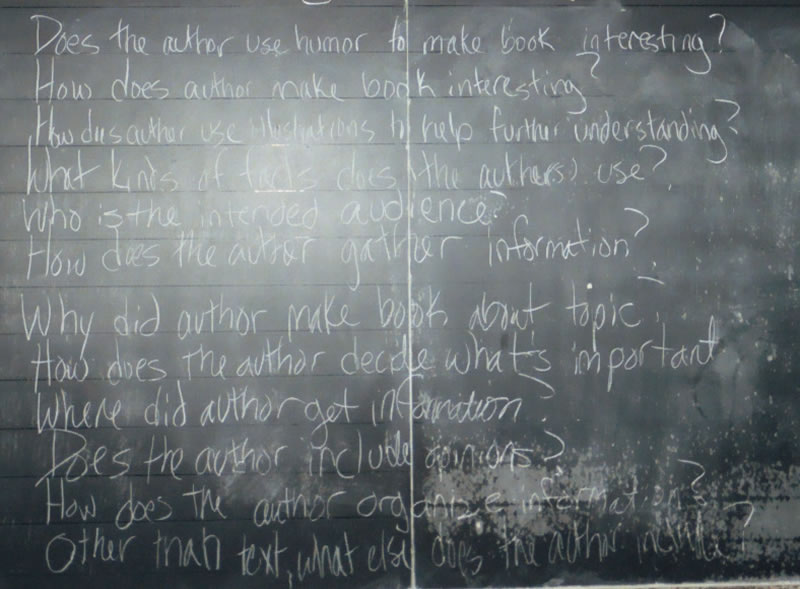 Does the author use humor to make book interesting?
How does author make book interesting?
How does author use illustrations to help further understanding?
What kinds of facts does the author(s) use?
Who is the intended audience?
How does the author gather information?
Why did author make book about topic?
How does the author decide what's important
Where did author get information?
Does the author include opinions?
How does the author organize information?
Other than text, what else does the author include?